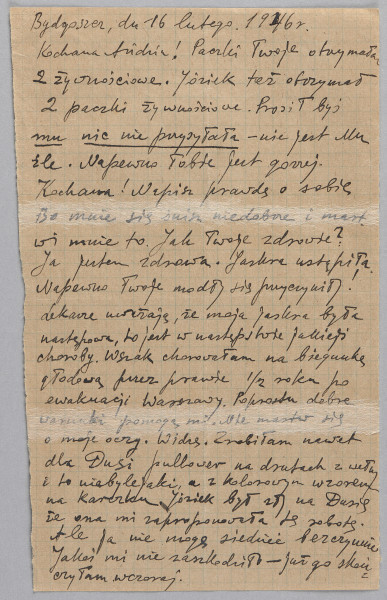 Bydgoszcz, dn 16 lutego. 1946 r.
Kochana! Paczki Twoje otrzymałam
2 żywnościowe. Józiek też otrzymał
2 paczki żywnościowe. Prosił byś
mu nic nie przysyłała – nie jest Mu
źle. Napewno Tobie jest gorzej.
Kochana! Napisz prawdę o sobie
Bo mnie się śnisz niedobrze i mart
wi mnie to. Jak Twoje zdrowie?
Ja jestem zdrowa. Jaskra ustąpiła,
Napewno Twoje modły się przyczyniły.
Lekarze uważają, że moja jaskra była
następowa, to jest w następstwie jakiejś
choroby. Wszak chorowałam na biegunkę
głodową przez prawie 1/2 roku po
ewakuacji Warszawy. Poprostu dobre
warunki pomogą mi. Nie martw się
o moje oczy. Widzę. Zrobiłam nawet
dla Dusi pullower na drutach z wełny
i to niebylejaki, a z kolorowym wzorem
na karczku. Józiek był zły na Dusię
że ona mi zaproponowała tę robotę.
Ale ja nie mogę siedzieć bezczynnie
Jakoś mi nie zaszkodziło – już go skoń
czyłam wczoraj.